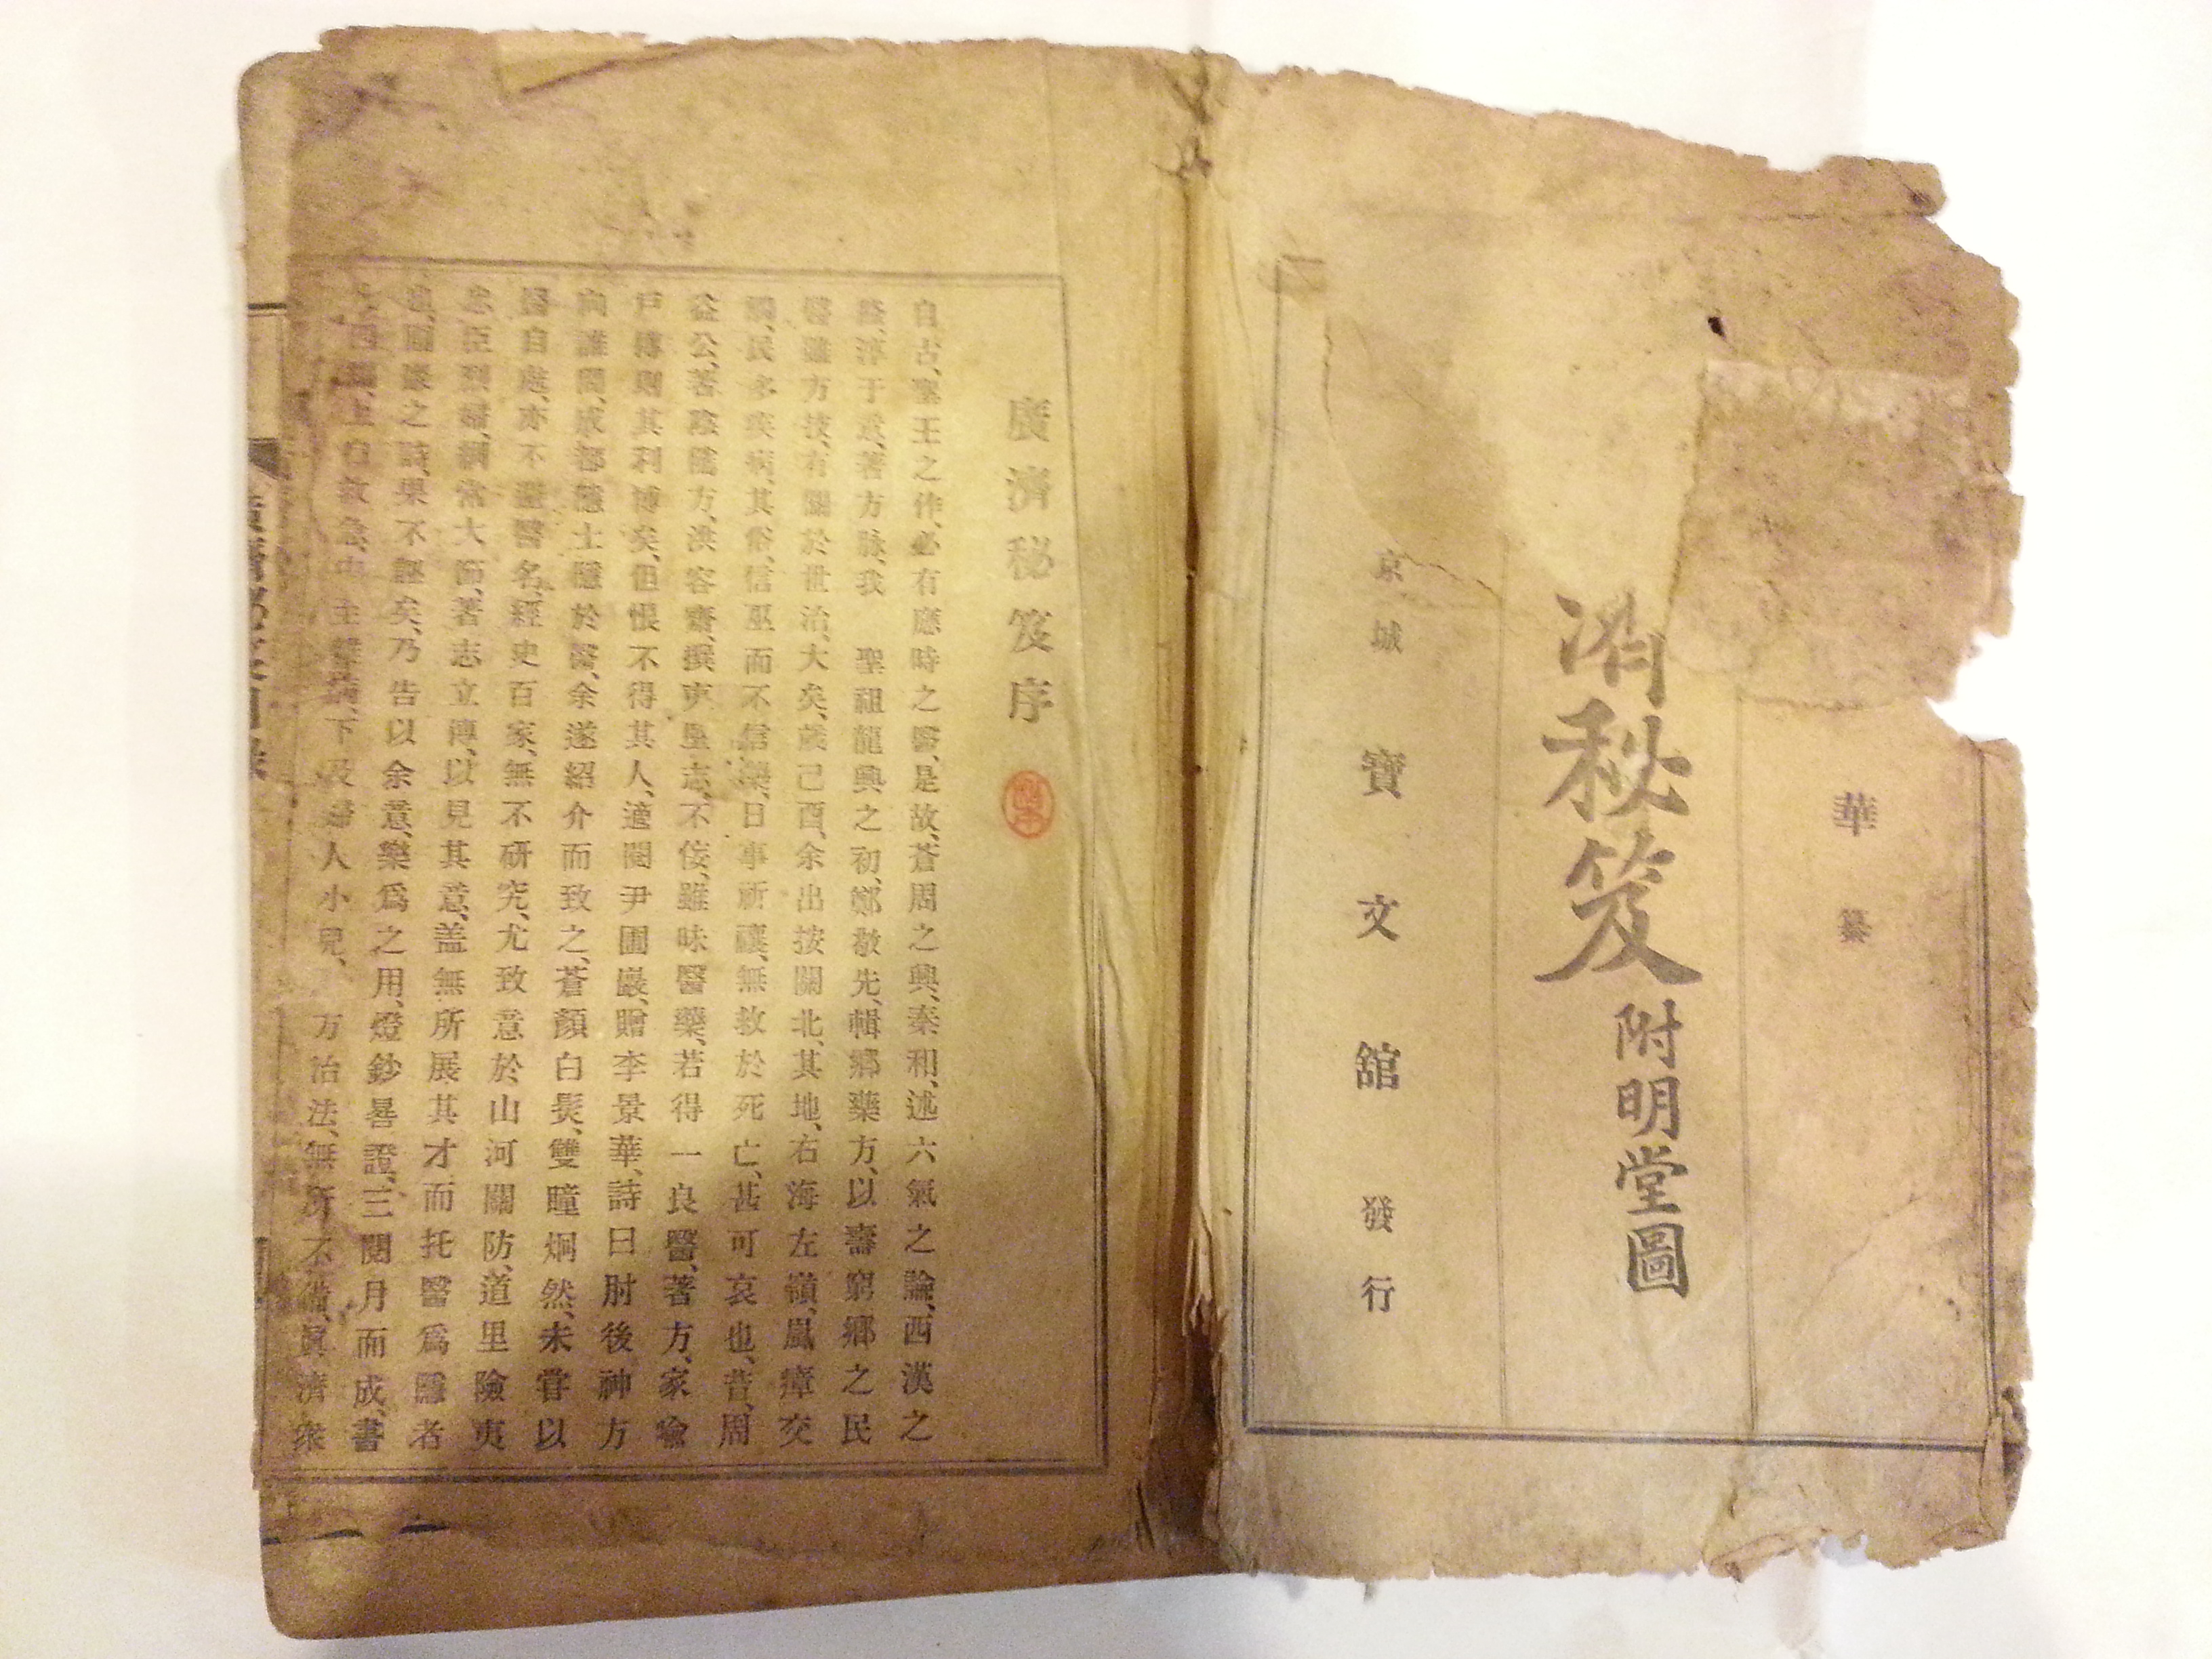 華纂
濟秘笈附明堂圖
京城寶文舘發行
廣濟秘笈序
自古、聖王之作、必有應時之醫、是故、蒼周之興、秦和、述六氣之論、西漢之
盛、淳于意、著方脉、我 聖祖龍興之初、鄭敬先、輯鄕藥方、以壽窮鄕之民
醫雖方技、有關於世治、大矣、歲己酉、余出按關北、其地、右海左嶺、嵐瘴交
觸、民多疾病、其俗、信巫而不信藥、日事祈禳、無救於死亡、甚可哀也、昔、周
益公、著陰隲方、洪容齋、撰夷堅志、不侫、雖昧醫藥、若得一良醫、著方、家喩
戶傳則其利博矣、但恨不得其人、適閱尹圃巖、贈李景華、詩曰肘後神方
向誰問、成都隱士隱於醫、余遂紹介而致之、蒼顏白髮、雙瞳烱然、未嘗以
醫自處、亦不還醫名、經史百家、無不硏究、尤致意於山河關防、道里險夷
忠臣烈婦、綱常大節、著志立傳、以見其意、盖無所展其才、而托醫爲隱者
也、圃巖之詩、果不誣矣、乃告以余意、樂爲之用、燈鈔晷證、三閱月而成、書
四編、上自救急、中 主雜病、下及婦人小兒、万治法、無所不備、眞濟衆